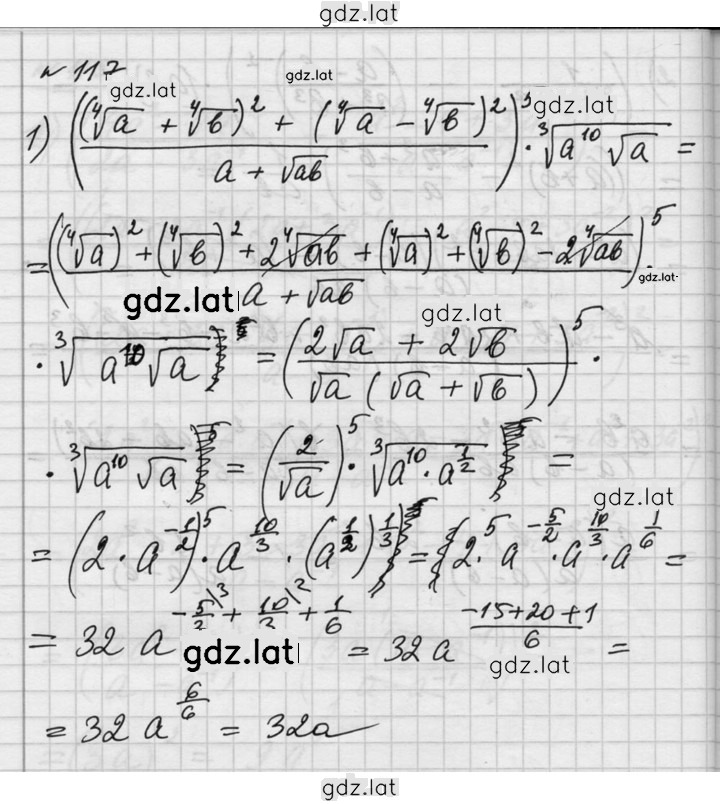 gdz.lat
№ 117
gdz.lat gdz.lat
1) (((⁴√a + ⁴√b)² + (⁴√a − ⁴√b)²) / (a + √ab))⁵ · ³√(a¹⁰√a) =
gdz.lat
= (((⁴√a)² + (⁴√b)² + 2⁴√ab + (⁴√a)² + (⁴√b)² − 2⁴√ab) / (a + √ab))⁵ ·
gdz.lat gdz.lat gdz.lat
· ³√(a¹⁰√a) = ((2√a + 2√b) / (√a (√a + √b)))⁵ ·
· ³√(a¹⁰√a) = (2/√a)⁵ · ³√(a¹⁰ · a^(1/2)) =
gdz.lat
= (2 · a^(−1/2))⁵ · a^(10/3) · (a^(1/2))^(1/3) = 2⁵ · a^(−5/2) · a^(10/3) · a^(1/6) =
= 32 a^(−5/2\3 + 10/3\2 + 1/6) = 32 a^((−15+20+1)/6) =
gdz.lat gdz.lat
= 32 a^(6/6) = 32a
gdz.lat